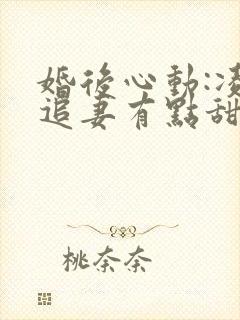 婚後心動:凌
追妻有點甜
桃奈奈